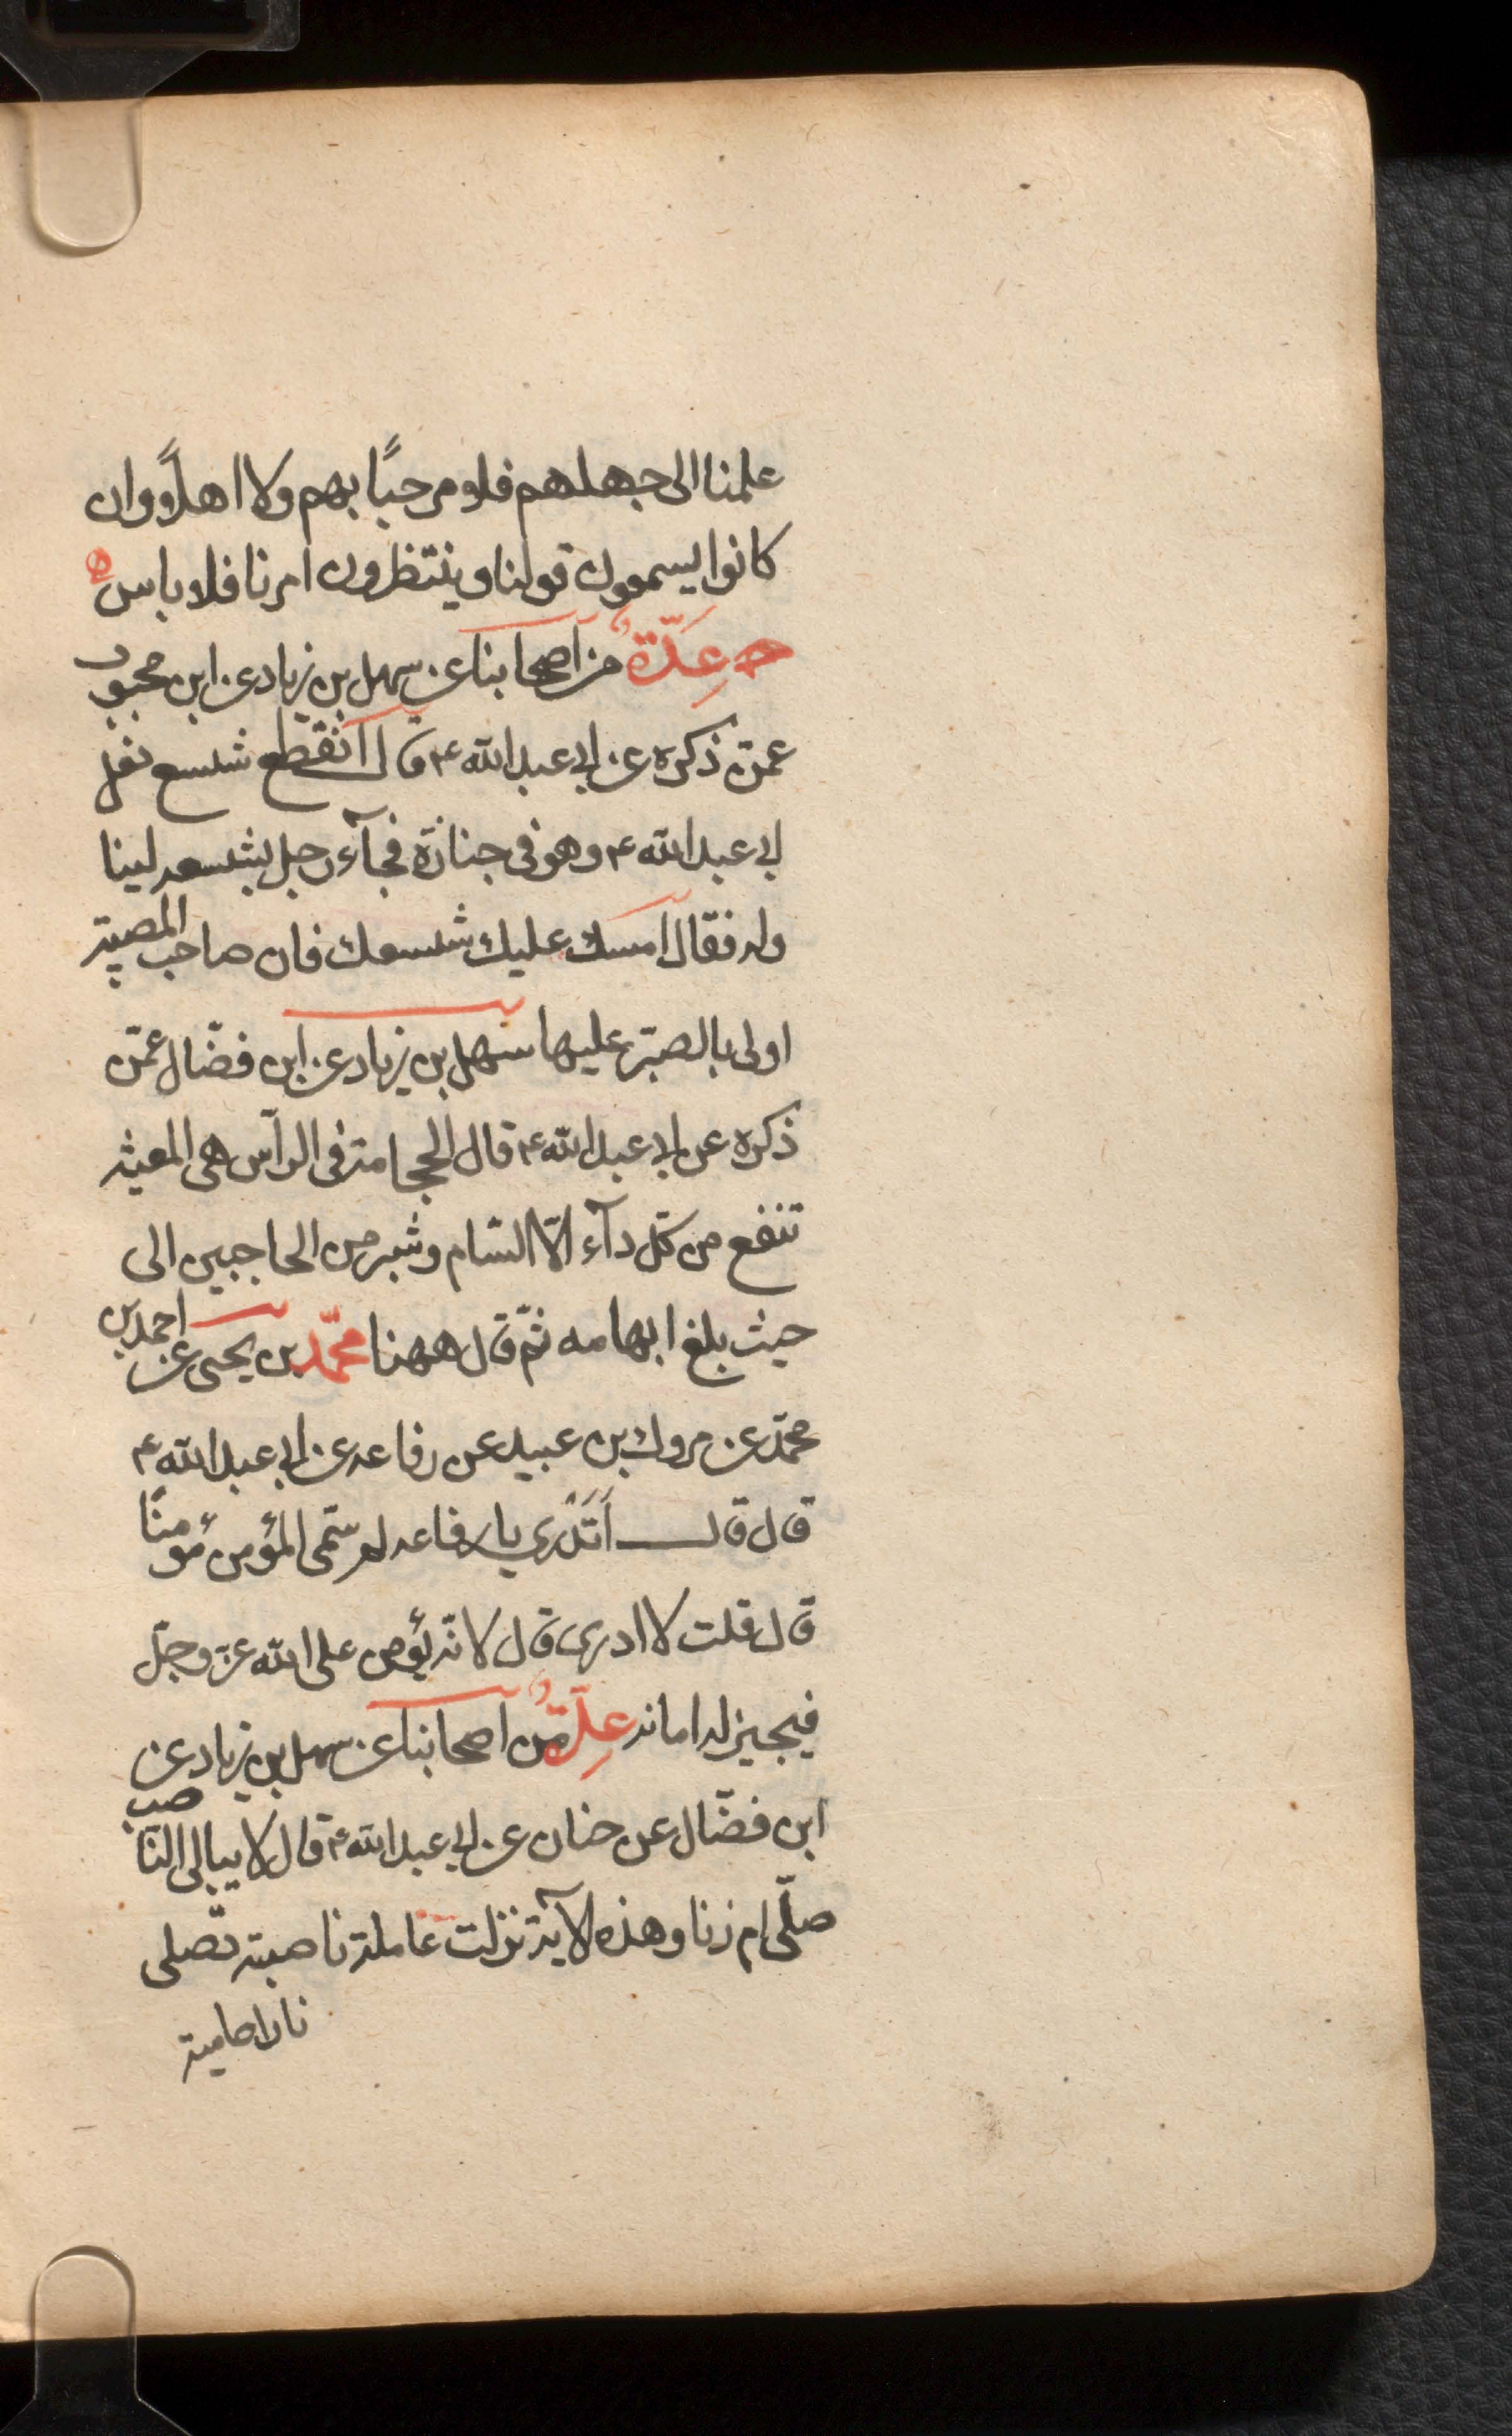 علمنا الى جهلهم فلا مرحبًا بهم ولا اهلًا وان
كانوا يسمعون قولنا وينتظرون امرنا فلا باس
عِدَّةٌ من اصحابنا عن سهل بن زياد عن ابن محبوب
عمّن ذكره عن ابى عبد الله ع قال انقطع شسع نعل
ابى عبد الله ع وهو فى جنازة فجآء رجل بشسعه لينا
وله فقال امسك عليك شسعك فان صاحب المصيبة
اولى بالصبر عليها سهل بن زياد عن ابن فضّال عمّن
ذكره عن ابى عبد الله ع قال الحجامة فى الرآس هى المغيثه
تنفع من كلّ دآء الّا السّام وشبر من الحاجبين الى
حيث بلغ ابهامه ثمّ قال ههنا محمّد بن يحيى عن احمد بن
محمّد عن مروك بن عبيد عن رفاعه عن ابى عبد الله ع
قال قال أَتَدْرى يا رفاعه لم سمّى المؤمن مؤمنًا
قال قلت لا ادرى قال لانه يؤمن على الله عزّ وجلّ
فيجيز له امانه عِدّةٌ من اصحابنا عن سهل بن زياد عن
ابن فضّال عن حنان عن ابى عبد الله ع قال لا يبالى الناصب
صلّى ام زنا وهذه الآية نزلت عاملة ناصبة تصلى
نارا حامية